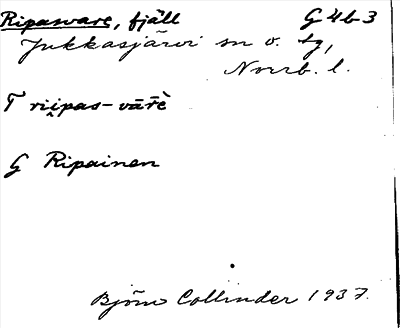 Ripasvare, fjäll G 4b3
Jukkasjärvi sn o. tg,
Norrb. l.
T rii̯pas-vārḕ
G Ripainen
Björn Collinder 1937.